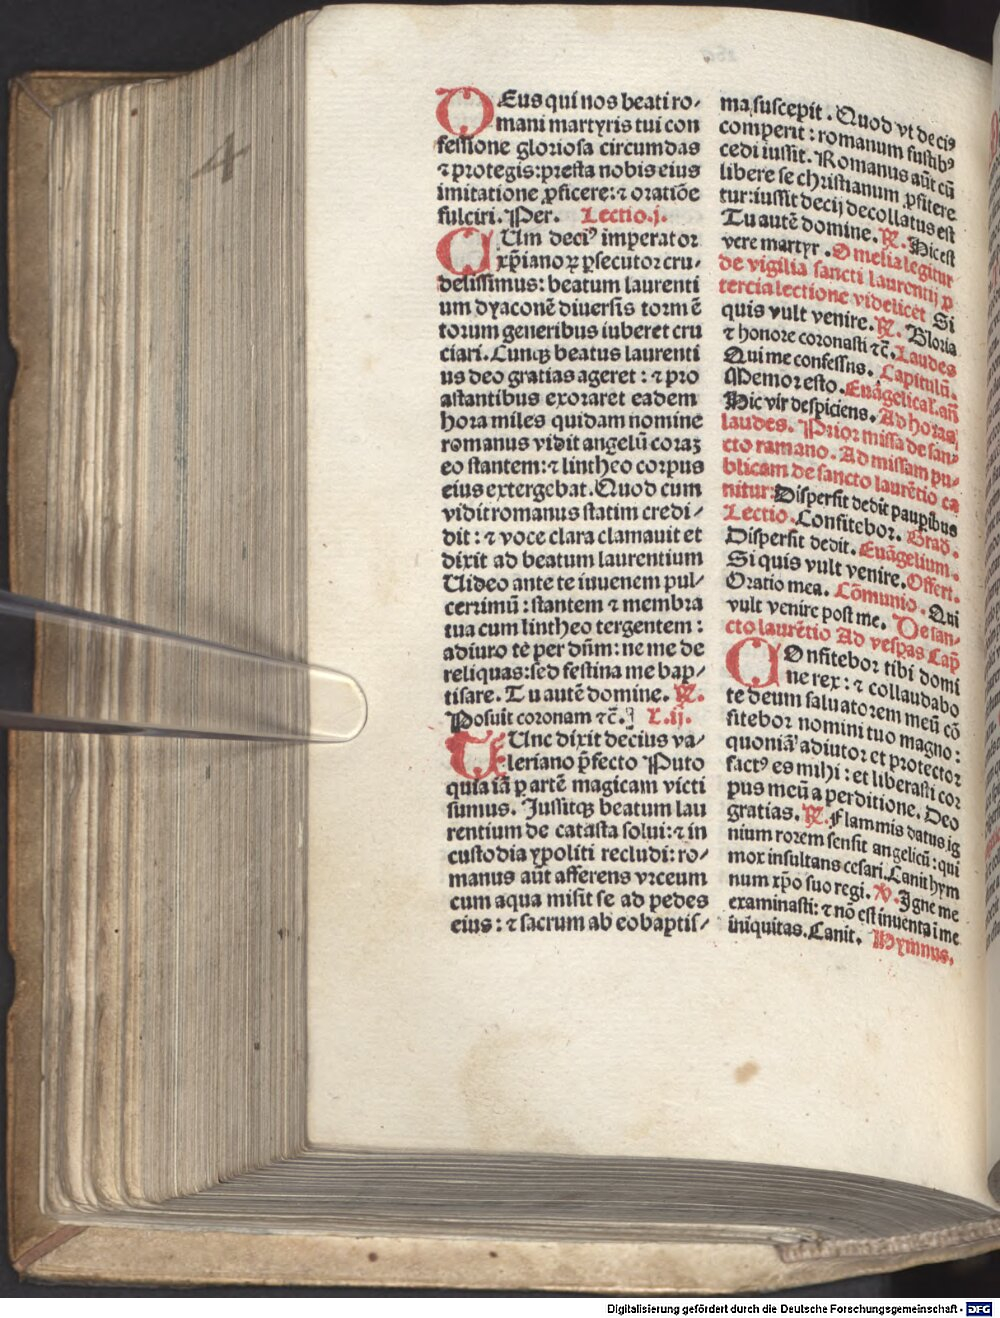 4
DEus qui nos beati ro⸗
mani martyris tui con
fessione gloriosa circumdas
⁊ protegis: presta nobis eius
imitatione ꝓficere: ⁊ oratiōe
fulciri. Per. Lectio.j.
CUm deciꝰ imperator
xp̄ianoꝝ ꝑsecutor cru⸗
delissimus: beatum laurenti
um dyaconē diuersis tormē
torum generibus iuberet cru
ciari. Cunqꝫ beatus laurenti
us deo gratias ageret: ⁊ pro
astantibus exoraret eadem
hora miles quidam nomine
romanus vidit angelū coraꝫ
eo stantem: ⁊ lintheo corpus
eius extergebat. Quod cum
vidit romanus statim credi⸗
dit: ⁊ voce clara clamauit et
dixit ad beatum laurentium
Uideo ante te iuuenem pul⸗
cerrimū: stantem ⁊ membra
tua cum lintheo tergentem:
adiuro te per dn̄m: ne me de
reliquas: sed festina me bap⸗
tisare. Tu autē domine. ℟.
Posuit coronam ⁊c̄. L.ij.
TUnc dixit decius va⸗
leriano p̄fecto Puto
quia iā ꝑ artē magicam victi
sumus. Jussitqꝫ beatum lau
rentium de catasta solui: ⁊ in
custodia ypoliti recludi: ro⸗
manus aūt afferens vrceum
cum aqua misit se ad pedes
eius: ⁊ sacrum ab eo baptis⸗
ma suscepit. Quod vt deciꝰ
comperit: romanum fustibꝰ
cedi iussit. Romanus aūt cū
libere se christianum ꝓfitere
tur: iussit decij decollatus est
Tu autē domine. ℟. Hic est
vere martyr. Omelia legitur
de vigilia sancti laurentij ꝓ
tercia lectione videlicet Si
quis vult venire. ℟. Gloria
⁊ honore coronasti ⁊c̄. Laudes
Qui me confessus. Capitulū.
Memor esto. Euāgelical. an̄
Hic vir despiciens. Ad horas
laudes. Prior missa de san⸗
cto ramano. Ad missam pu⸗
blicam de sancto laurētio ca
nitur: Dispersit dedit pauꝑibus
Lectio. Confitebor. Grad.
Dispersit dedit. Euāgelium.
Si quis vult venire. Offert.
Oratio mea. Cōmunio. Qui
vult venire post me. De san⸗
cto laurētio Ad vesꝑas Cap̄
COnfitebor tibi domi
ne rex: ⁊ collaudabo
te deum saluatorem meū cō
fitebor nomini tuo magno:
quoniā adiutor et protector
factꝰ es mihi: et liberasti cor
pus meū a perditione. Deo
gratias. ℟. Flammis datus ig
nium rorem sensit angelicū: qui
mox insultans cesari. Canit hym
num xp̄o suo regi. ℣. Igne me
examinasti: ⁊ nō est inuenta ī me
iniquitas. Canit. Hymnus.
Digitalisierung gefördert durch die Deutsche Forschungsgemeinschaft - DFG